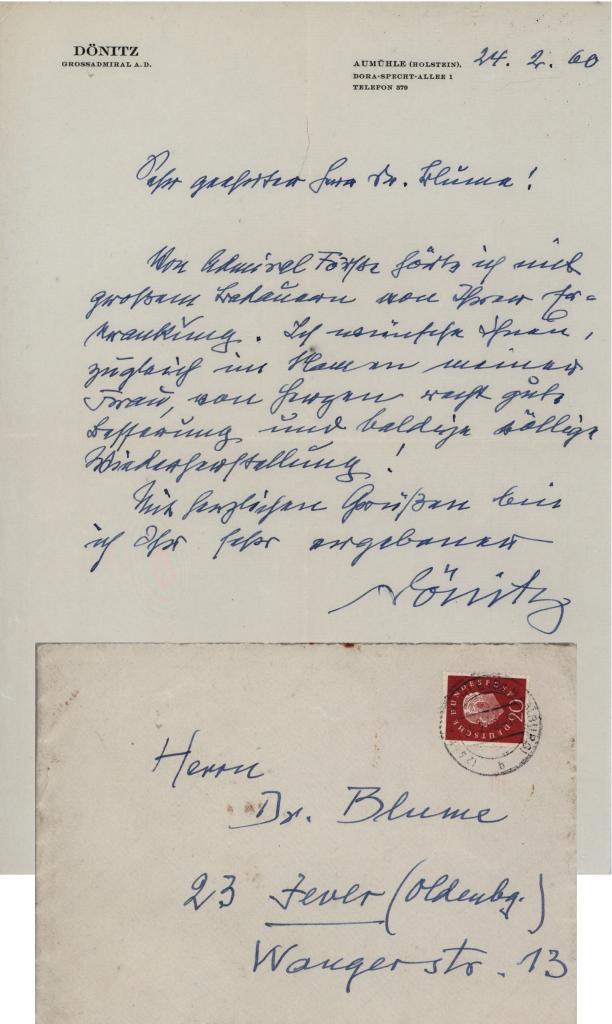 DÖNITZ
GROSSADMIRAL A.D.
AUMÜHLE (HOLSTEIN), 24. 2. 60
DORA-SPECHT-ALLEE 1
TELEFON 379
Sehr geehrter Herr Dr. Blume!
Von Admiral Förste hörte ich mit
großem Bedauern von Ihrer Er=
krankung. Ich wünsche Ihnen,
zugleich im Namen meiner
Frau, von Herzen recht gute
Besserung und baldige völlige
Wiederherstellung!
Mit herzlichen Grüßen bin
ich Ihr sehr ergebener
Dönitz
DEUTSCHE BUNDESPOST
20
Herrn
Dr. Blume
23 Jever (Oldenbg.)
Wangerstr. 13